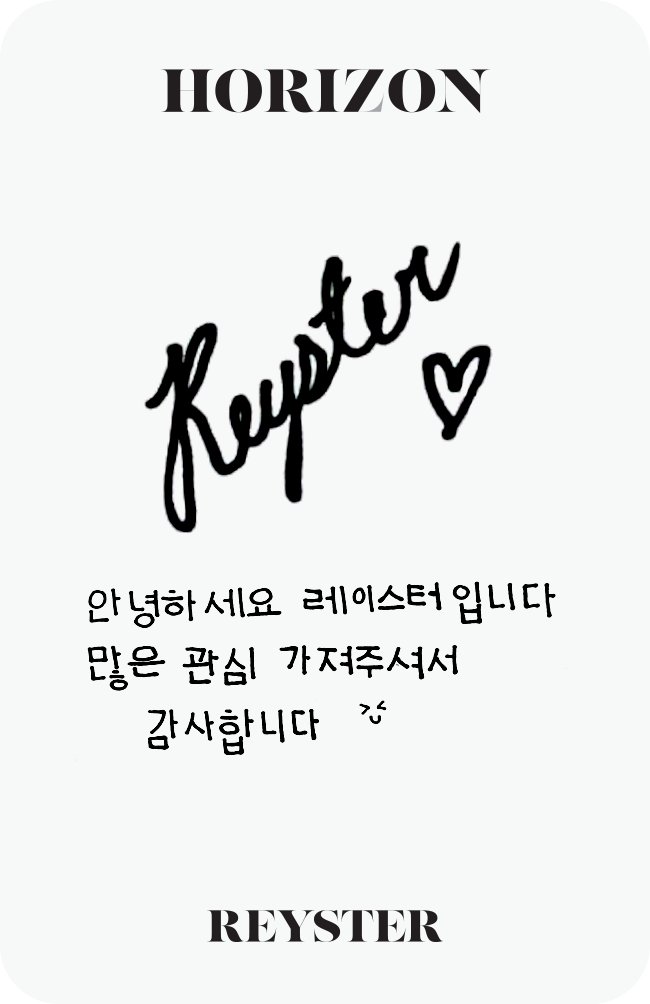 HORIZON
Reyster
안녕하세요 레이스터입니다
많은 관심 가져주셔서
감사합니다
REYSTER